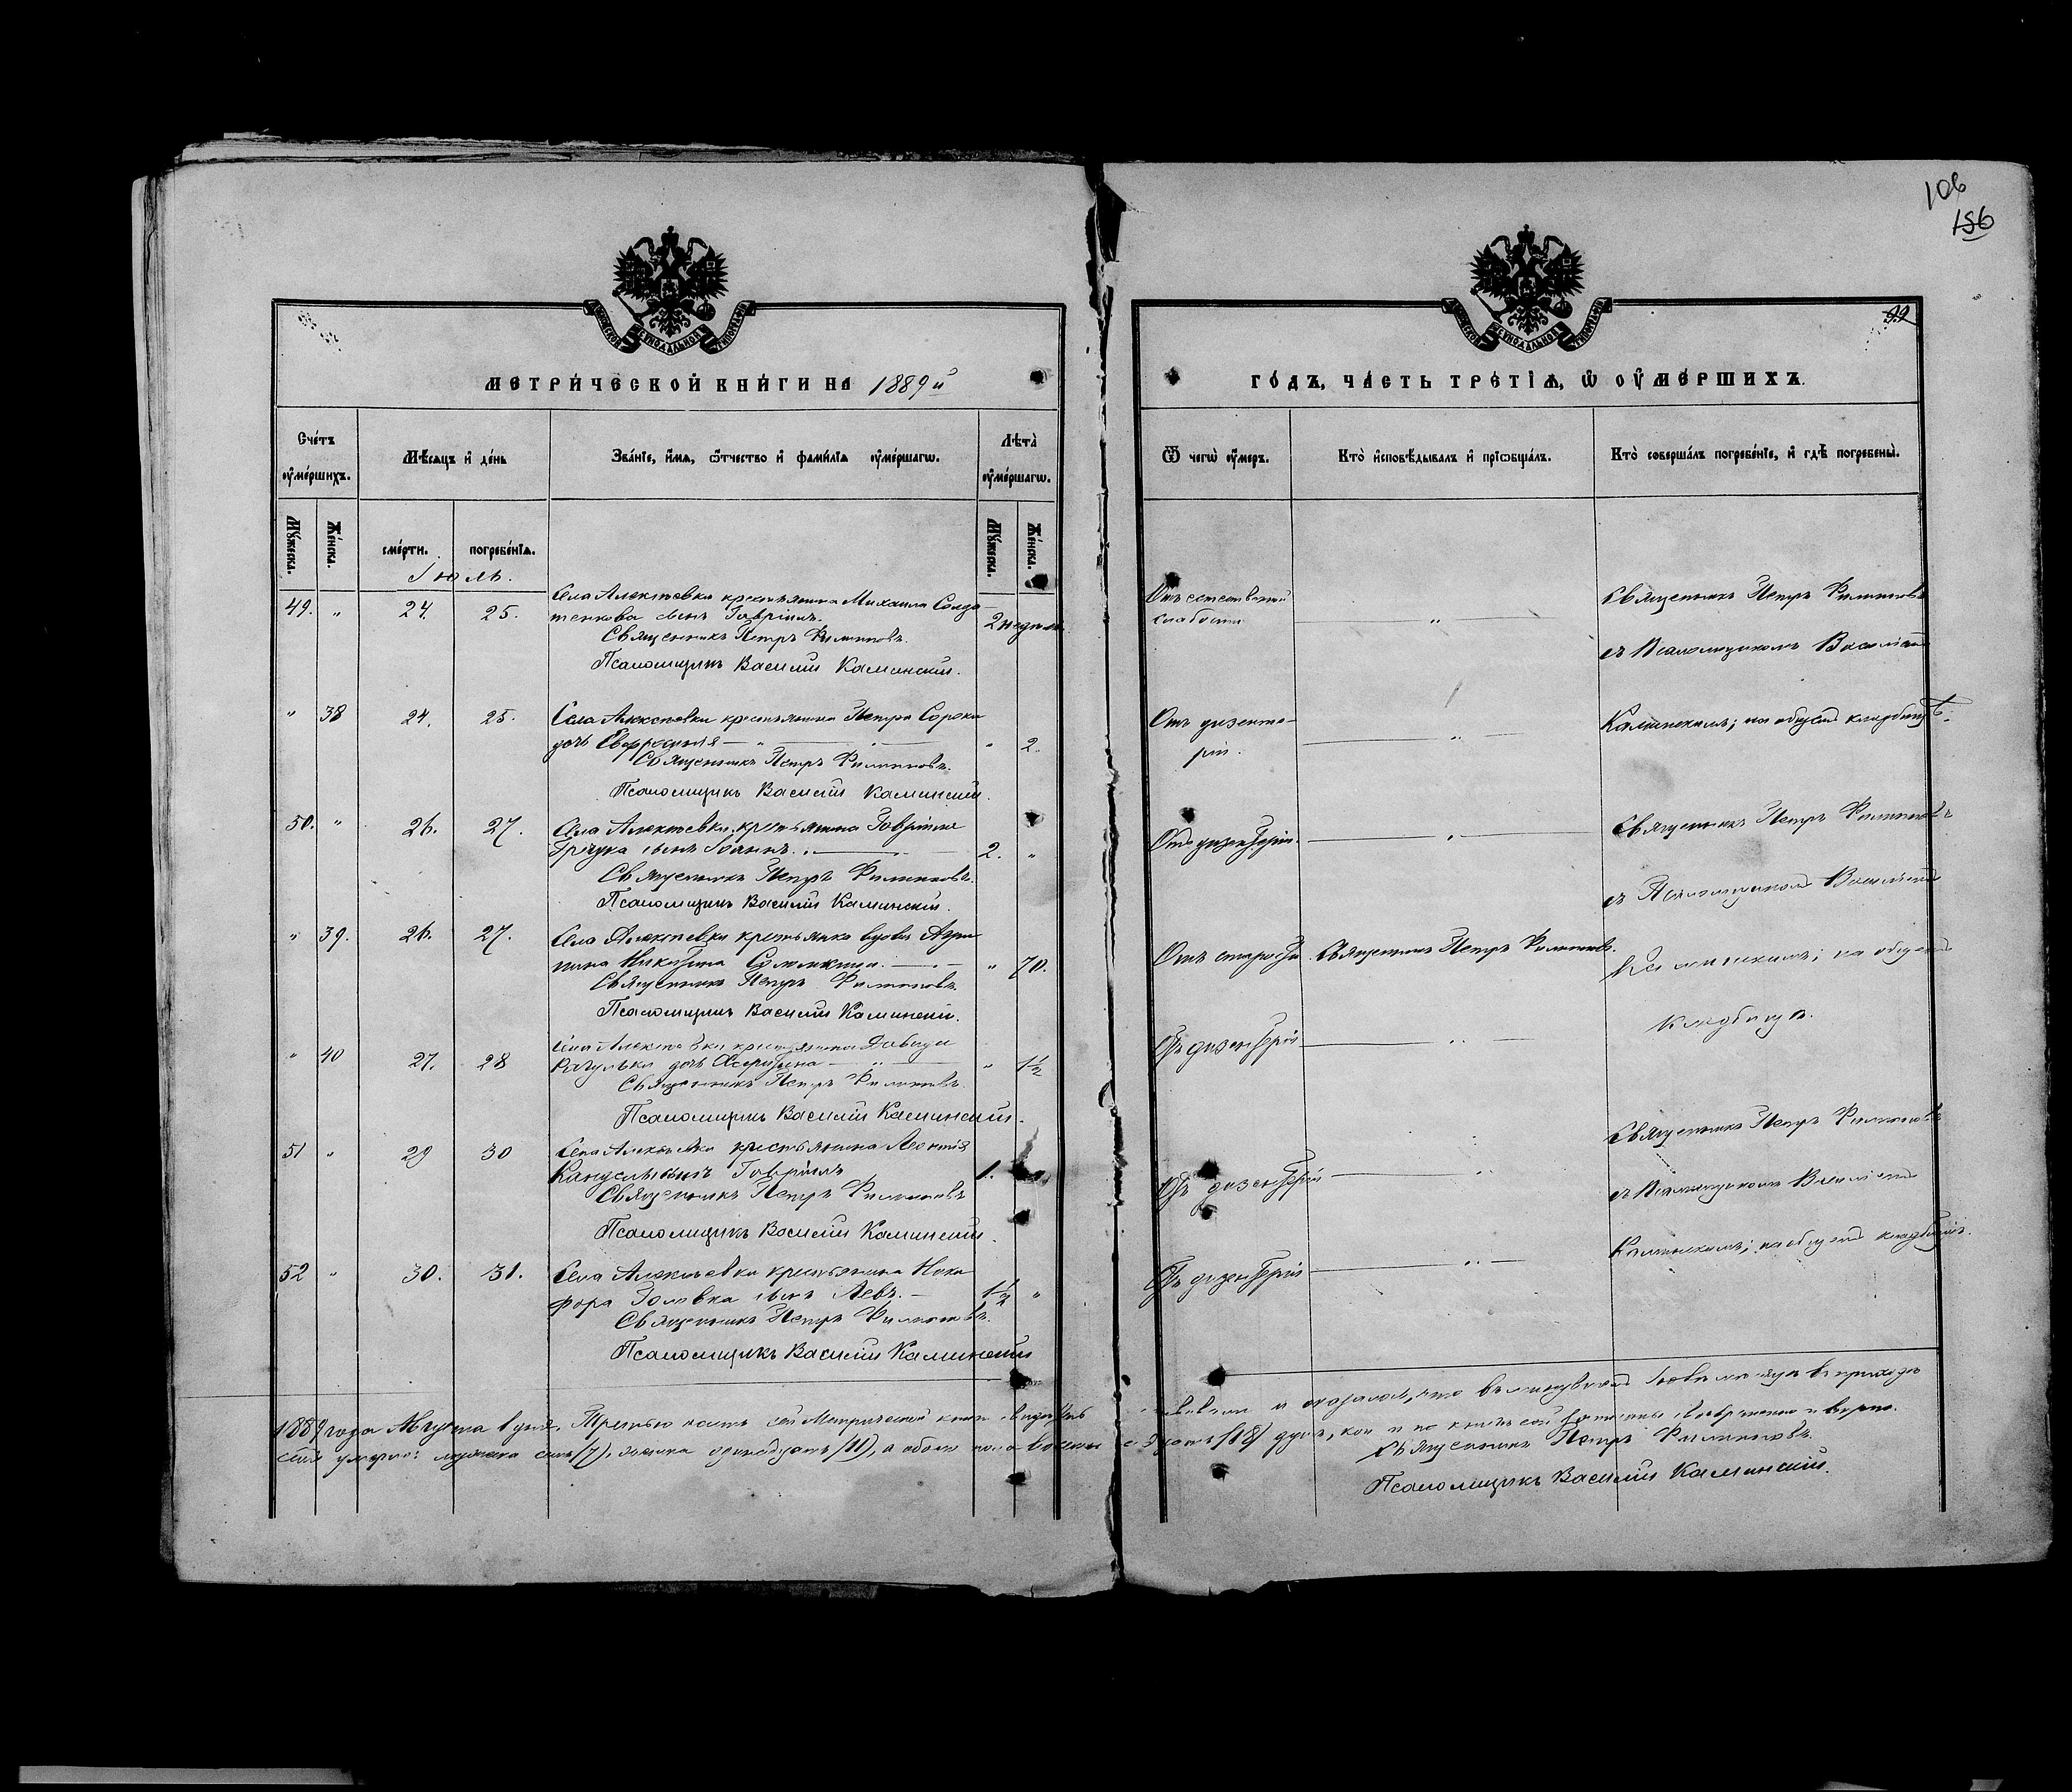 106
156
99
МЕТРИЧЕСКОЙ КНИГИ НА 1889й
ГОДЪ, ЧАСТЬ ТРЕТІѦ, Ѽ ОУМЕРШИХЪ.
Счетъ оумершихъ.
Мѣсяцъ и день
Званіе, имя, ѿчество и фамилія оумершагѡ.
Лѣта оумершагѡ.
Ѿ чегѡ оумеръ.
Кто исповѣдывалъ и пріѡбщалъ.
Кто совершалъ погребеніе, и гдѣ погребены.
Мужеска.
Женска.
смерти.
погребенія.
Мужеска.
Женска.
Іюль.
49. " 24. 25. Села Алексѣевки крестьянина Михаила Солда
тенкова сынъ Гавріилъ. 2 недѣли
Священникъ Петръ Филиповъ.
Псаломщикъ Василій Каминскій.
Отъ естественной
слабости
Священникъ Петръ Филиповъ
съ Псаломщикомъ Василіемъ
" 38 24. 25. Села Алексѣевки крестьянина Петра Сороки
дочь Евфросинія " 2.
Священникъ Петръ Филиповъ.
Псаломщикъ Василій Каминскій.
Отъ дизенте-
ріи.
Каминскимъ; на общемъ кладбищѣ.
50. " 26. 27. Села Алексѣевки, крестьянина Гавріила
сынъ Іоаннъ. 2. "
Священникъ Петръ Филиповъ.
Псаломщикъ Василій Каминскій.
Отъ дизентеріи.
Священникъ Петръ Филиповъ
съ Псаломщикомъ Василіемъ
" 39. 26. 27. Села Алексѣевки крестьянка вдова Агри
пина Никитина " 70.
Священникъ Петръ Филиповъ.
Псаломщикъ Василій Каминскій.
Отъ старости. Священникъ Петръ Филиповъ.
Каминскимъ; на общемъ
кладбищѣ.
" 40 27. 28 Села Алексѣевки крестьянина Давида
дочь " 1½
Священникъ Петръ Филиповъ.
Псаломщикъ Василій Каминскій.
Отъ дизентеріи
51 " 29 30 Села Алексѣевки крестьянина Леонтія
сынъ Гавріилъ 1.
Священникъ Петръ Филиповъ
Псаломщикъ Василій Каминскій.
Отъ дизентеріи
Священникъ Петръ Филиповъ
съ Псаломщикомъ Василіемъ
Каминскимъ; на общемъ кладбищѣ.
52 " 30. 31. Села Алексѣевки крестьянина Ники
фора Головка сынъ Левъ. 1½ "
Священникъ Петръ Филиповъ.
Псаломщикъ Василій Каминскій
Отъ дизентеріи
1889 года Августа 1 дня. Третью часть сей Метрической книги и оказалось, что въ минувшемъ Іюлѣ мѣсяцѣ въ приходѣ
семъ умерло: мужска семь (7), женска одинадцать (11), а обоего пола восемнадцать (18) душъ, кои и по книгѣ сей записаны своевременно и вѣрно.
Священникъ Петръ Филиповъ.
Псаломщикъ Василій Каминскій.